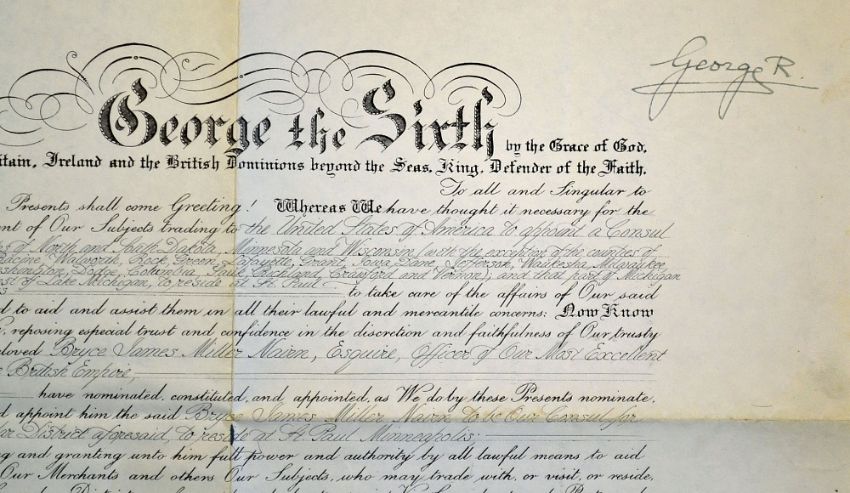 George R.
George the Sixth by the Grace of God,
itain, Ireland and the British Dominions beyond the Seas, King, Defender of the Faith,
To all and Singular to
Presents shall come Greeting! Whereas We have thought it necessary for the
ent of Our Subjects trading to the United States of America to appoint a Consul
es of North and South Dakota, Minnesota and Wisconsin (with the exception of the counties of
Racine, Walworth, Rock, Green, Lafayette, Grant, Iowa, Dane, Jefferson, Waukesha, Milwaukee,
ashington, Dodge, Columbia, Sauk, Richland, Crawford and Vernon); and that part of Michigan
est of Lake Michigan, to reside at St. Paul
to take care of the affairs of Our said
d to aid and assist them in all their lawful and mercantile concerns: Now Know
reposing especial trust and confidence in the discretion and faithfulness of Our trusty
eloved Bryce James Miller Nairn, Esquire, Officer of Our Most Excellent
e British Empire,
have nominated, constituted, and appointed, as We do by these Presents nominate,
d appoint him the said Bryce James Miller Nairn to be Our Consul for
or District aforesaid, to reside at St. Paul Minneapolis;
ng and granting unto him full power and authority by all lawful means to aid
Our Merchants and others Our Subjects, who may trade with, or visit, or reside,